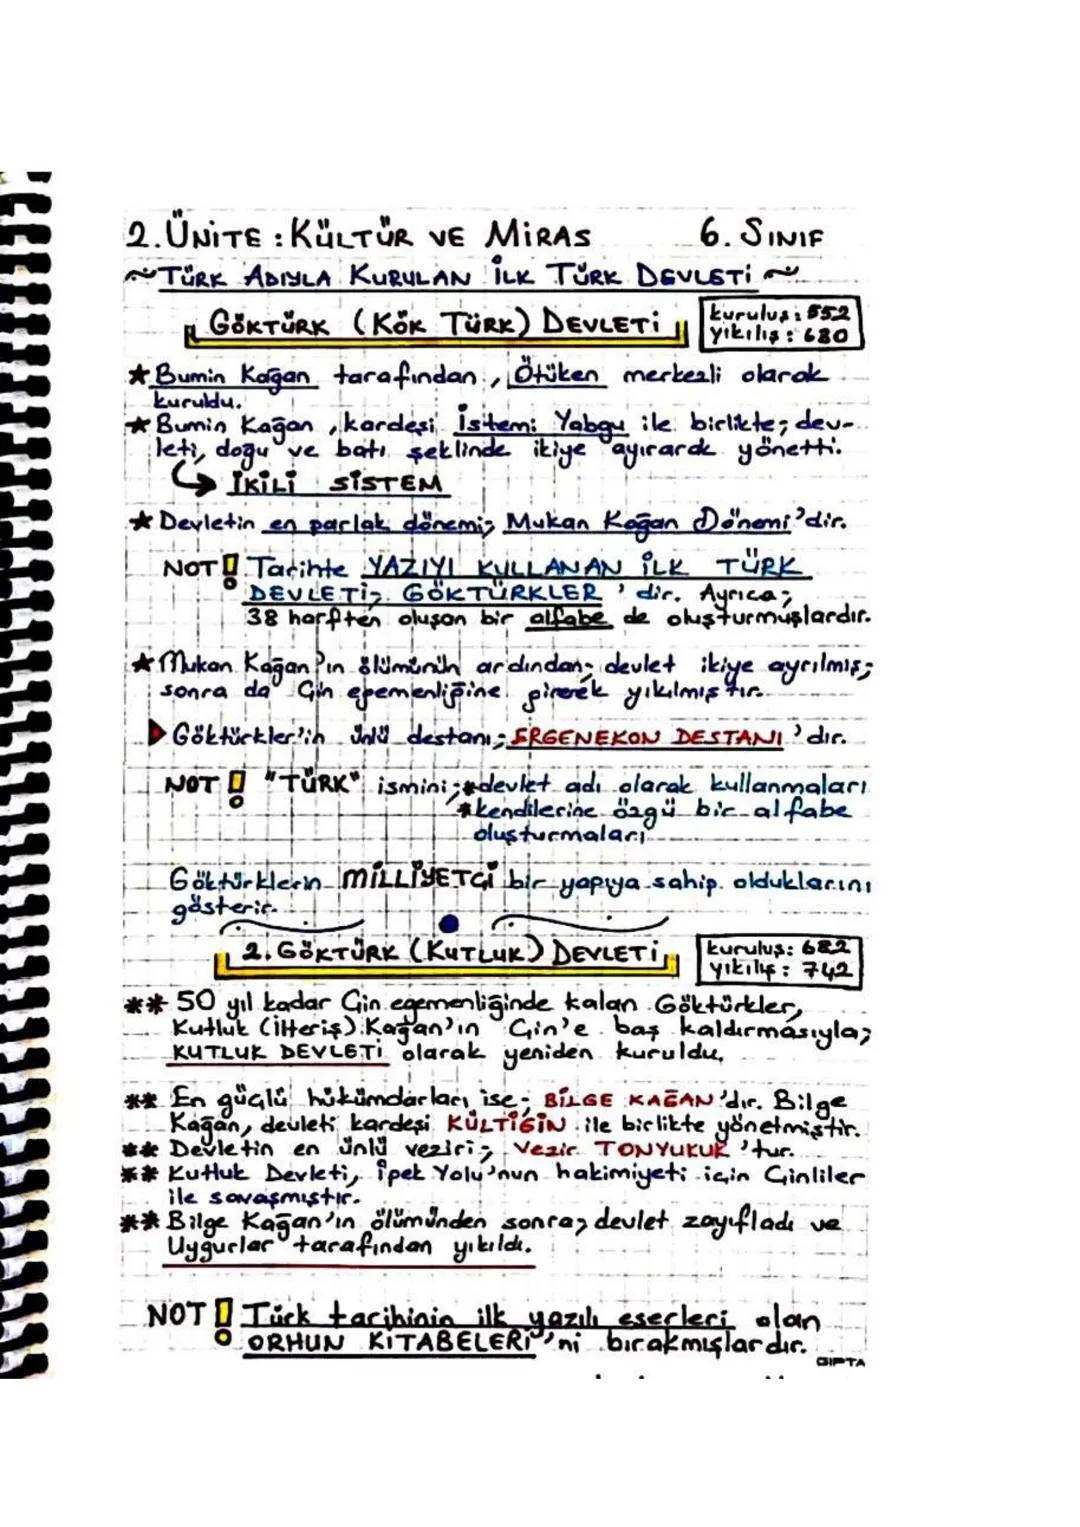 2. ÜNİTE : KÜLTÜR VE MİRAS 6. SINIF
~ TÜRK ADIYLA KURULAN İLK TÜRK DEVLETİ ~
GÖKTÜRK (KÖK TÜRK) DEVLETİ
kuruluş : 552
yıkılış : 630
★ Bumin Kağan tarafından, Ötüken merkezli olarak
kuruldu.
★ Bumin Kağan, kardeşi İstemi Yabgu ile birlikte; dev-
leti, doğu ve batı şeklinde ikiye ayırarak yönetti.
↳ İKİLİ SİSTEM
★ Devletin en parlak dönemi; Mukan Kağan Dönemi'dir.
NOT! Tarihte YAZIYI KULLANAN İLK TÜRK
DEVLETİ; GÖKTÜRKLER'dir. Ayrıca;
38 harften oluşan bir alfabe de oluşturmuşlardır.
★ Mukan Kağan'ın ölümünün ardından; devlet ikiye ayrılmış;
sonra da Çin egemenliğine girerek yıkılmıştır.
▶ Göktürkler'in ünlü destanı; ERGENEKON DESTANI'dır.
NOT! "TÜRK" ismini; *devlet adı olarak kullanmaları
*kendilerine özgü bir alfabe
oluşturmaları
Göktürklerin MİLLİYETÇİ bir yapıya sahip olduklarını
gösterir.
2. GÖKTÜRK (KUTLUK) DEVLETİ
kuruluş: 682
yıkılış: 742
** 50 yıl kadar Çin egemenliğinde kalan Göktürkler,
Kutluk (İlteriş) Kağan'ın Çin'e baş kaldırmasıyla;
KUTLUK DEVLETİ olarak yeniden kuruldu.
** En güçlü hükümdarları ise; BİLGE KAĞAN'dır. Bilge
Kağan, devleti kardeşi KÜLTİGİN ile birlikte yönetmiştir.
** Devletin en ünlü veziri; Vezir TONYUKUK'tur.
** Kutluk Devleti, İpek Yolu'nun hakimiyeti için Çinliler
ile savaşmıştır.
** Bilge Kağan'ın ölümünden sonra; devlet zayıfladı ve
Uygurlar tarafından yıkıldı.
NOT! Türk tarihinin ilk yazılı eserleri olan
ORHUN KİTABELERİ'ni bırakmışlardır.
GIPTA